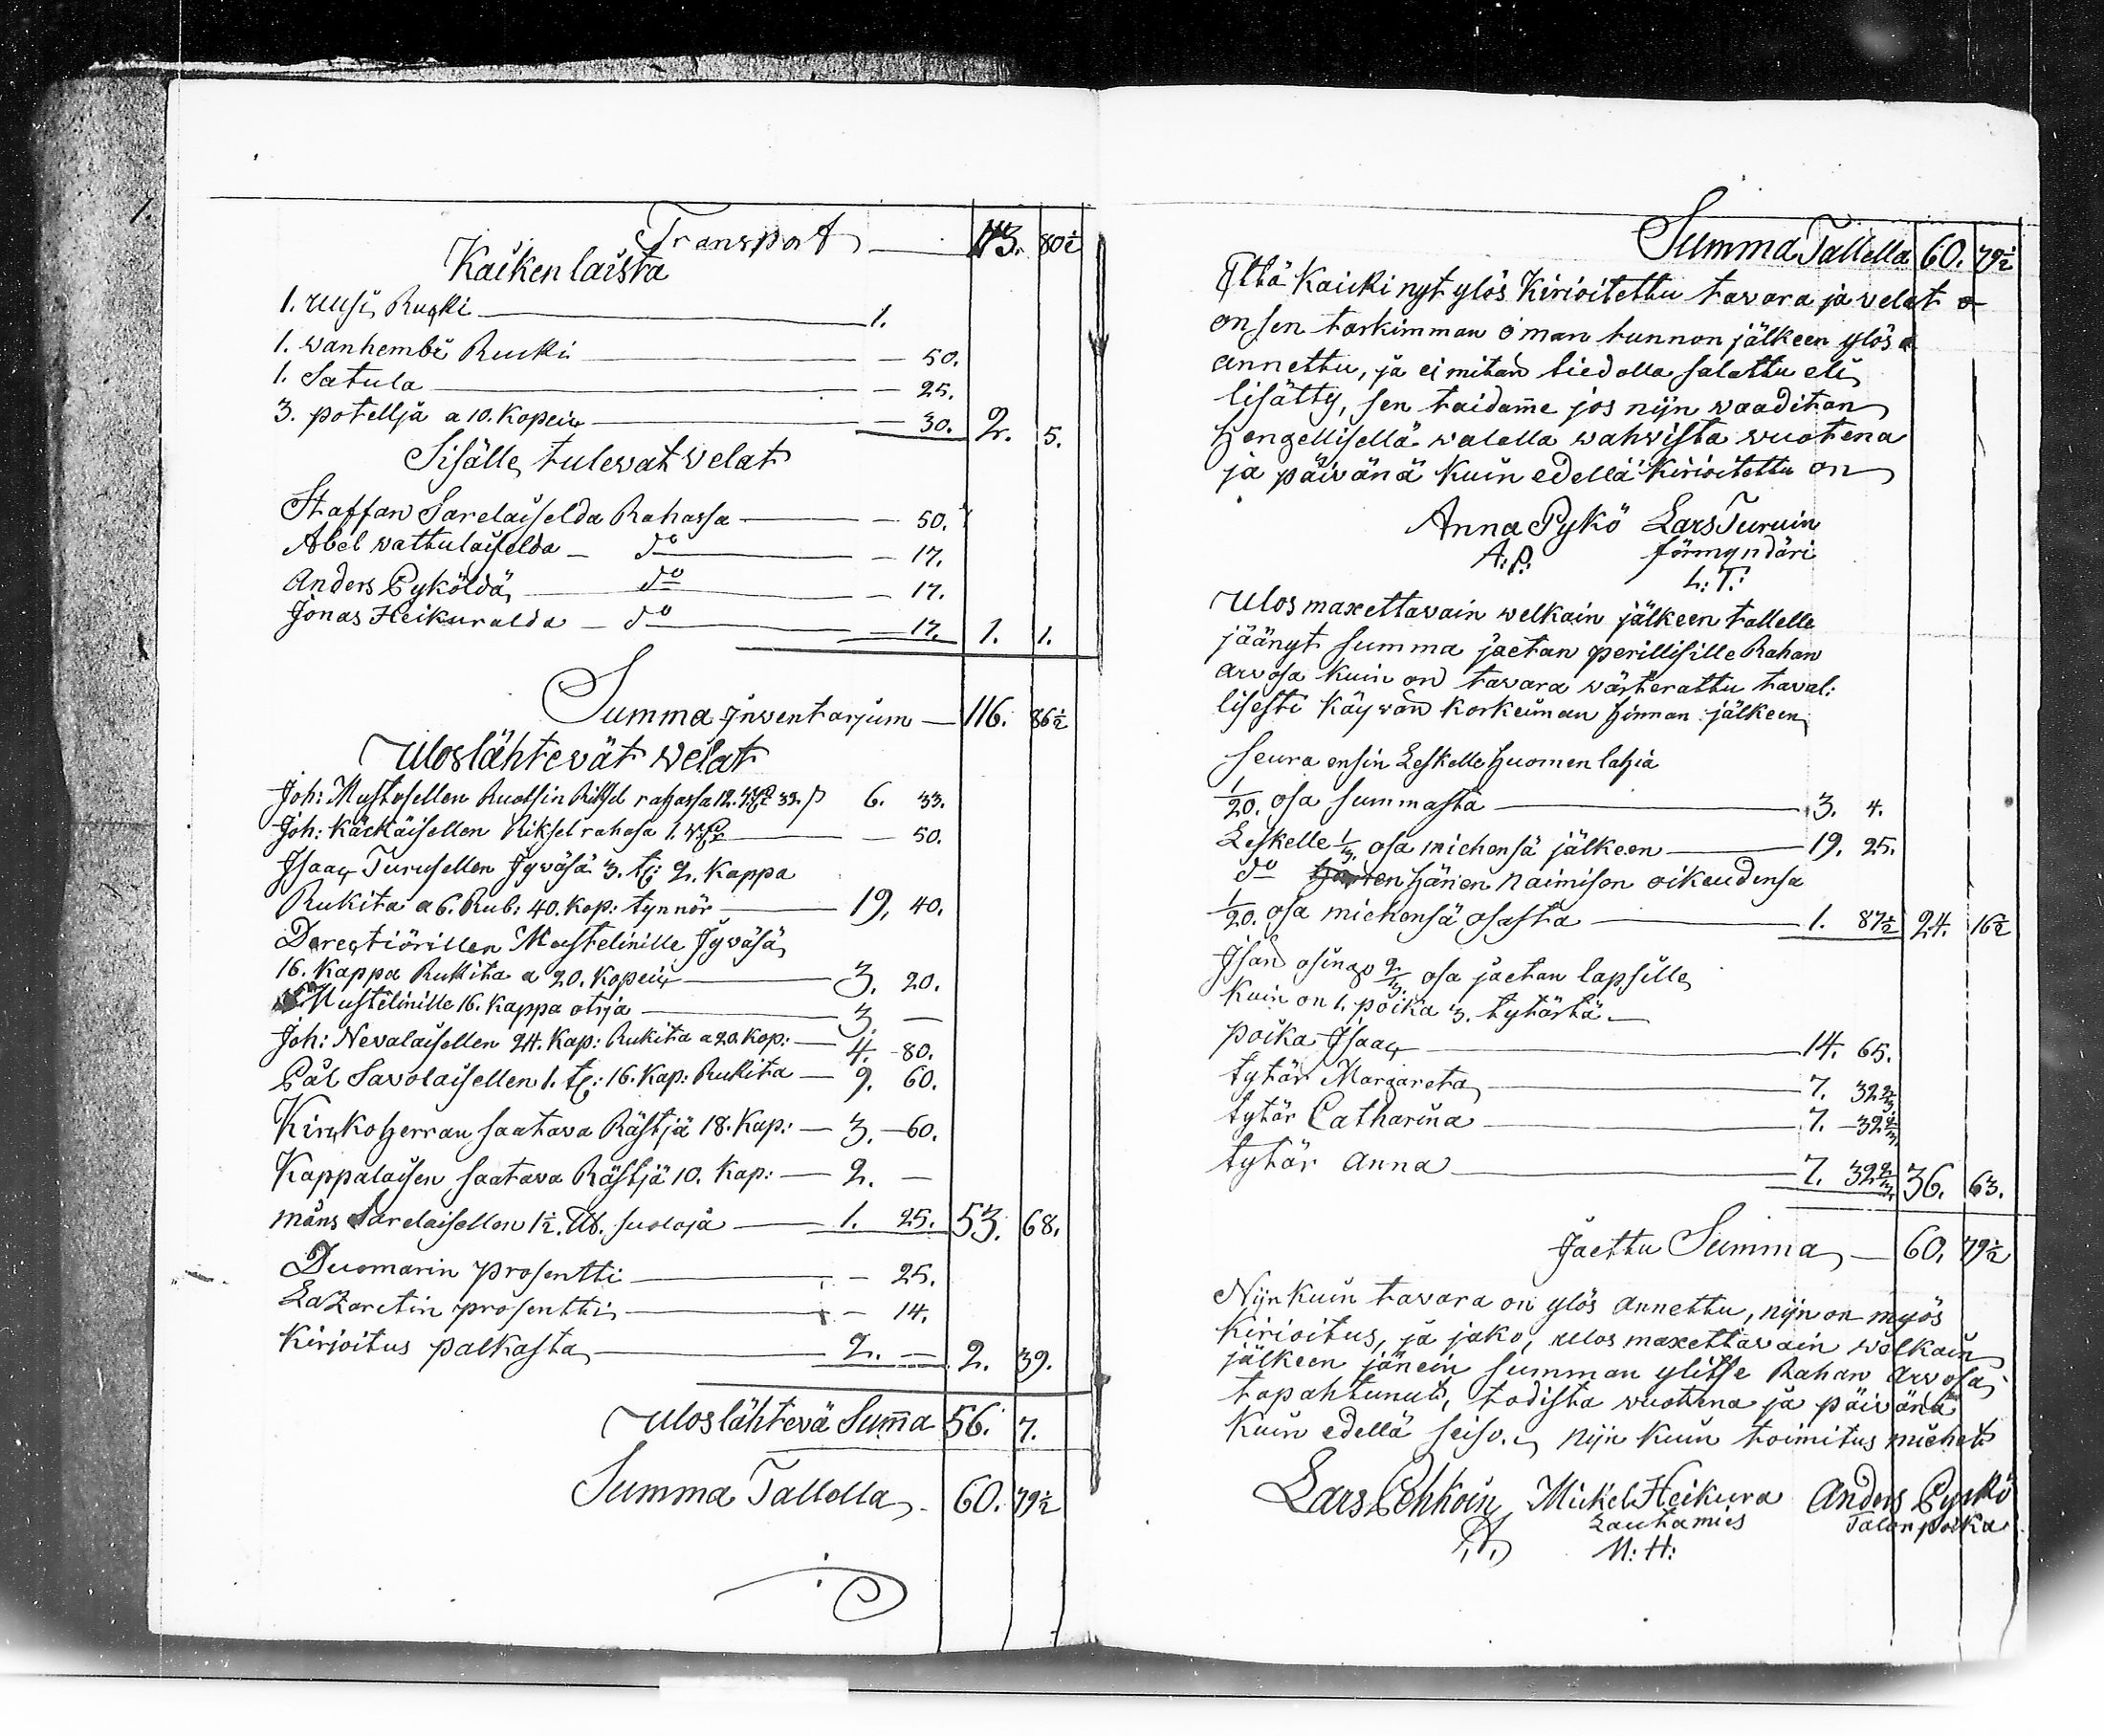 1.
Transport — 113. 80½
Kaikenlaista
1. uusi Rucki — 1.
1. wanhembi Rucki — 50.
1. Satula — 25.
3. potellja a 10. Kopeic — 30. 2. 5.
Sisälle tulewat welat
Staffan Sarelaiselda Rahassa — 50.
Abel wattulaiselda — do — 17.
Anders Pyköldä — do — 17.
Jonas Heikuralda — do — 17. 1. 1.
Summa Inwentarjum — 116. 86½
Uloslähtevät welat
Joh: Mustosellen Ruotsin Riksel rahassa 12. 32. p 6. 33.
Joh: Käckäisellen Riksel rahasa 1. — 50.
Isaac Turusellen Jywäsä 3. t: 2. Kappa
Rukita a 6. Rub: 40. Kop: tynnör — 19. 40.
Derectiörillen Mustelinille Jywäsä
16. Kappa Rukita a 20. Kopeic — 3. 20.
Mustelinille 16. Kappa otrja — 3. —
Joh: Nevalaisellen 24. Kap: Rukita a 20. Kop: — 4. 80.
Pål Savolaisellen 1. t: 16. Kap: Rukita — 9. 60.
Kirckoherran saatava Rästjä 18. Kap: — 3. 60.
Kappalaisen saatava Rästjä 10. Kap: — 2. —
måns Sarelaisellen 1½. ℔. suoloja — 1. 25. 53. 68.
Duomarin prosentti — 25.
LaZaretin prosentti — 14.
Kirjoitus palkasta — 2. — 2. 39.
Uloslähtevä Sum̄a 56. 7.
Summa Tallella 60. 79½
Summa Tallella 60. 79½
Että Kaicki nyt ylös Kirioitettu tavara ja velat
on sen tarkimman oman tunnon jälkeen ylös
annettu, ja ei mitän tiedolla salattu eli
lisätty, sen taidam̄e jos nijn waaditan
Hengellisellä walalla wahwista wuotena
ja päivänä kuin edellä kirioitettu on
Anna Pykö Lars Turuin
A. P. förmyndäri
L: T:
Ulosmaxettavain welkain jälkeen tallelle
jäänyt summa jaetan perillisille Rahan
arvosa kuin on tavara wärterattu taval:
lisesti Käywän korkeiman hinnan jälkeen
seura ensin Leskelle huomen lahja
1/20. osa summasta — 3. 4.
Leskelle 1/3. osa miehensä jälkeen — 19. 25.
do hänen naimison oikeudensa
1/20. osa miehensä osasta — 1. 87½ 24. 16½
Isän osingo 2/3. osa jaetan lapsille
Kuin on 1. poika 3. tytärtä —
poika Isaac — 14. 65.
tytär Margareta — 7. 32 2/3
tytär Catharina — 7. 32 2/3
tytär anna — 7. 32 2/3 36. 63.
Jaettu Summa — 60. 79½
Nijnkuin tavara on ylös annettu, nijn on myös
Kirioitus, ja jako, ulos maxettavain wälkain
jälkeen jänein summan ylitse Rahan arvosa
tapahtunut, todista wuotena ja päivänä
Kuin edellä seiso. nijn kuin toimitus miehet
Lars Pehkoin Mickel Heikura Anders Pykkö
Lautamies Talonpoika
M: H: